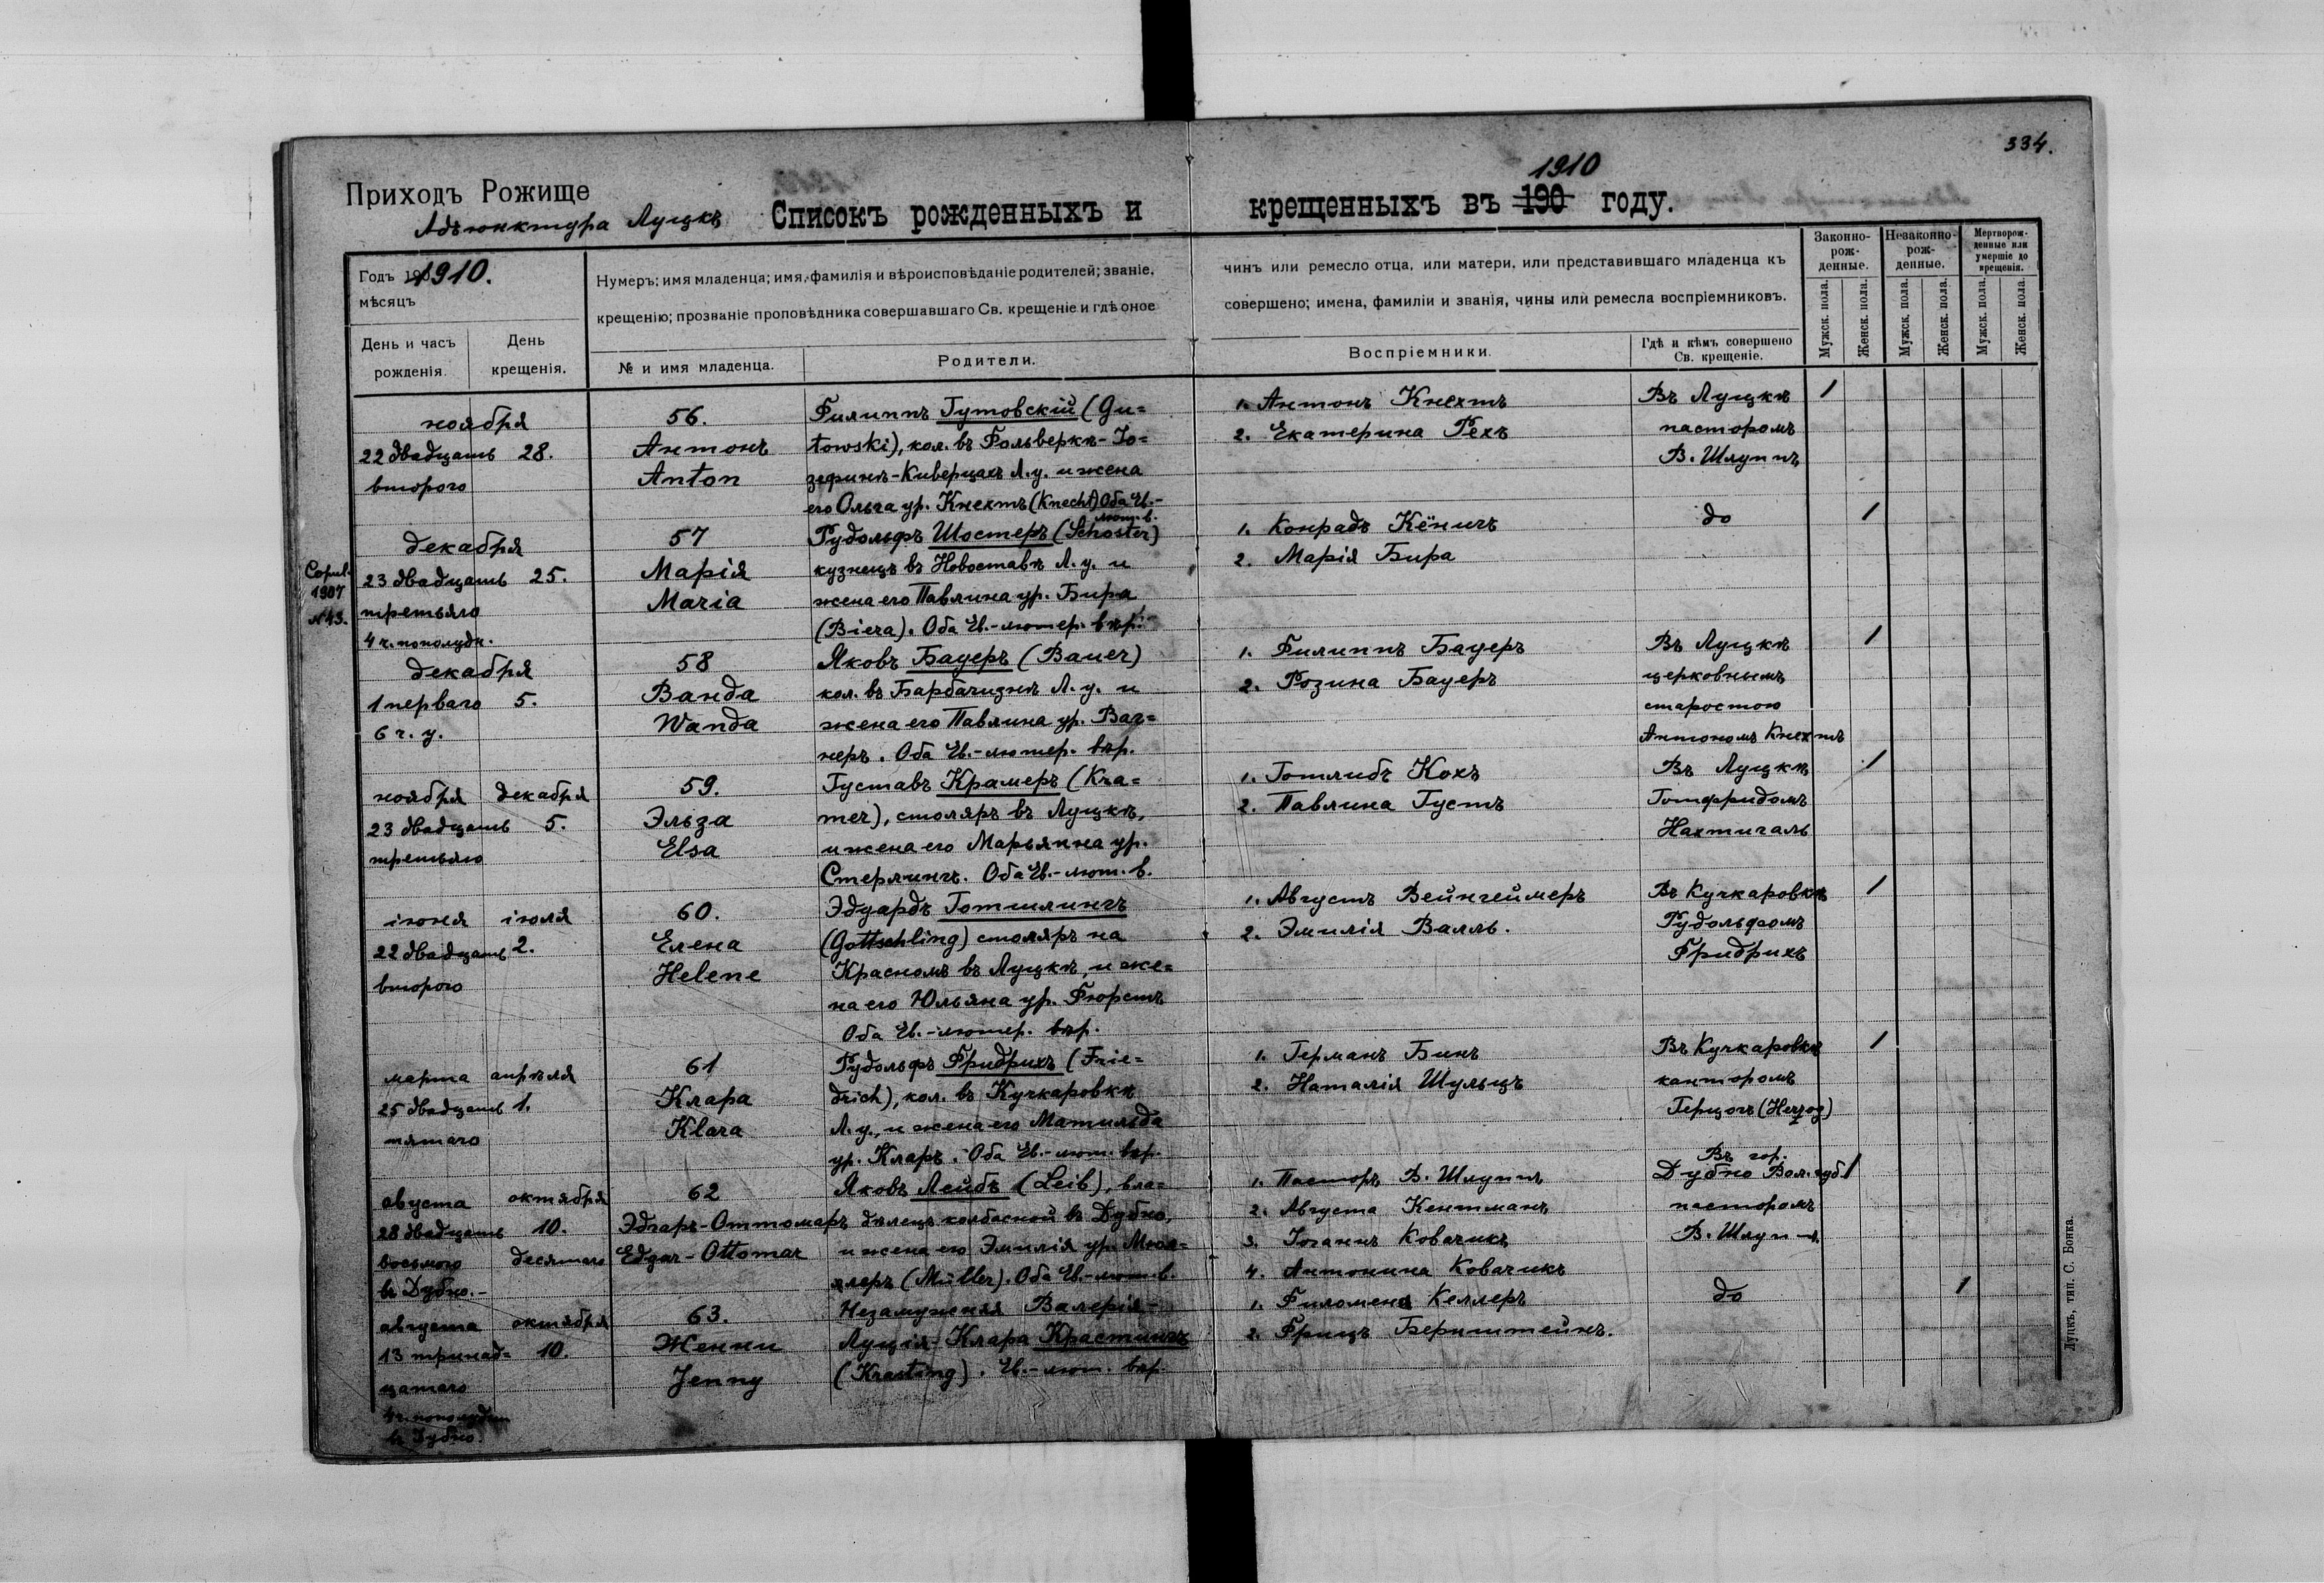 334.
Приходъ Рожище
Адъюнктура Луцкъ
Списокъ рожденныхъ и крещенныхъ въ 190 1910 году.
Годъ 1910.
мѣсяцъ
День и часъ рожденія.
День крещенія.
Нумеръ; имя младенца; имя, фамилія и вѣроисповѣданіе родителей; званіе, чинъ или ремесло отца, или матери, или представившаго младенца къ
крещенію; прозваніе проповѣдника совершавшаго Св. крещеніе и гдѣ оное совершено; имена, фамиліи и званія, чины или ремесла воспріемниковъ.
№ и имя младенца.
Родители.
Воспріемники.
Гдѣ и кѣмъ совершено Св. крещеніе.
Законно-рож-денные.
Незаконно-рож-денные.
Мертворож-денные или умершіе до крещенія.
Мужск. пола.
Женск. пола.
Мужск. пола.
Женск. пола.
Мужск. пола.
Женск. пола.
ноября
22 двадцать 28.
второго
56.
Антонъ
Anton
Филиппъ Гутовскій (Gu=
towski), кол. въ Фольверкѣ-Іо=
зефинъ-Киверцахъ Л.у. и жена
его Ольга ур. Кнехтъ (Knecht) Оба Ев.-
лют. в.
1. Антонъ Кнехтъ
2. Екатерина Рехъ
Въ Луцкѣ
пасторомъ
В. Шлуппъ
1
декабря
23 двадцать 25.
третьяго
4 ч. пополудн.
1907
№43.
57
Марія
Maria
Рудольфъ Шостеръ (Schoster)
кузнецъ въ Новоставѣ Л.у. и
жена его Павлина ур. Бира
(Biera). Оба Ев.-лютер. вѣр.
1. Конрадъ Кёнигъ
2. Марія Бира
до
1
декабря
1 перваго 5.
6 ч. у.
58
Ванда
Wanda
Яковъ Бауеръ (Bauer)
кол. въ Барбачизнѣ Л.у. и
жена его Павлина ур. Ваг=
неръ. Оба Ев.-лютер. вѣр.
1. Филиппъ Бауеръ
2. Розина Бауеръ
Въ Луцкѣ
церковнымъ
старостою
Антономъ Кнехтъ
1
ноября декабря
23 двадцать 5.
третьяго
59.
Эльза
Elsa
Густавъ Крамеръ (Kra=
mer), столяръ въ Луцкѣ,
и жена его Марьянна ур.
Стерлингъ. Оба Ев.-лют. в.
1. Готлибъ Кохъ
2. Павлина Густъ
Въ Луцкѣ
Готфридомъ
Нахтигаль
1
іюня іюля
22 двадцать 2.
второго
60.
Елена
Helene
Эдуардъ Готшлингъ
(Gottschling) столяръ на
Красномъ въ Луцкѣ, и же=
на его Юльяна ур. Фюрстъ
Оба Ев.-лютер. вѣр.
1. Августъ Вейнгеймеръ
2. Эмилія Валль.
Въ Кучкаровкѣ
Рудольфомъ
Фридрихъ
1
марта апрѣля
25 двадцать 1.
пятаго
61
Клара
Klara
Рудольфъ Фридрихъ (Frie=
drich), кол. въ Кучкаровкѣ
Л.у., и жена его Матильда
ур. Кларъ. Оба Ев.-лют. вѣр.
1. Германъ Бинъ
2. Наталія Шульцъ
Въ Кучкаровкѣ
канторомъ
Герцогъ (Herzog)
1
августа октября
28 двадцать 10.
восьмого десятаго
въ Дубно.-
62
Эдгаръ-Оттомаръ
Edgar-Ottomar
Яковъ Лейбъ (Leib), вла=
дѣлецъ колбасной въ Дубно,
и жена его Эмилія ур. Мюл=
леръ (Müller). Оба Ев.-лют. в.
1. Пасторъ В. Шлуппъ
2. Августа Кентманъ
3. Іоганнъ Ковачикъ
4. Антонина Ковачикъ
Въ гор.
Дубно Вол. губ.
пасторомъ
В. Шлуппъ
1
августа октября
13 тринад= 10.
цатаго
4 ч. пополудни
въ Дубно.
63.
Женни
Jenny
Незамужняя Валерія-
Луція-Клара Крастингъ
(Krasting). Ев.-лют. вѣр.
1. Филомена Келлеръ
2. Фрицъ Бернштейнъ.
до
1
Луцкъ, тип. С. Бонка.